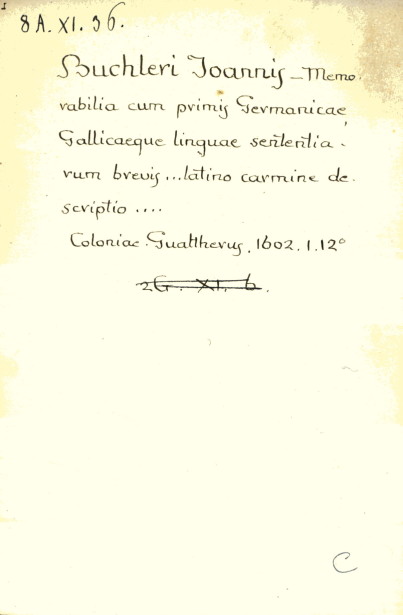 8 A. XI. 36.
Buchleri Joannis _ Memo
rabilia cum primis Germanicae,
Gallicaeque linguae sententia -
rum brevis ... latino carmine de-
scriptio ....
Coloniae. Gualtherus, 1602. 1. 12°
2G. XI. 6.
C